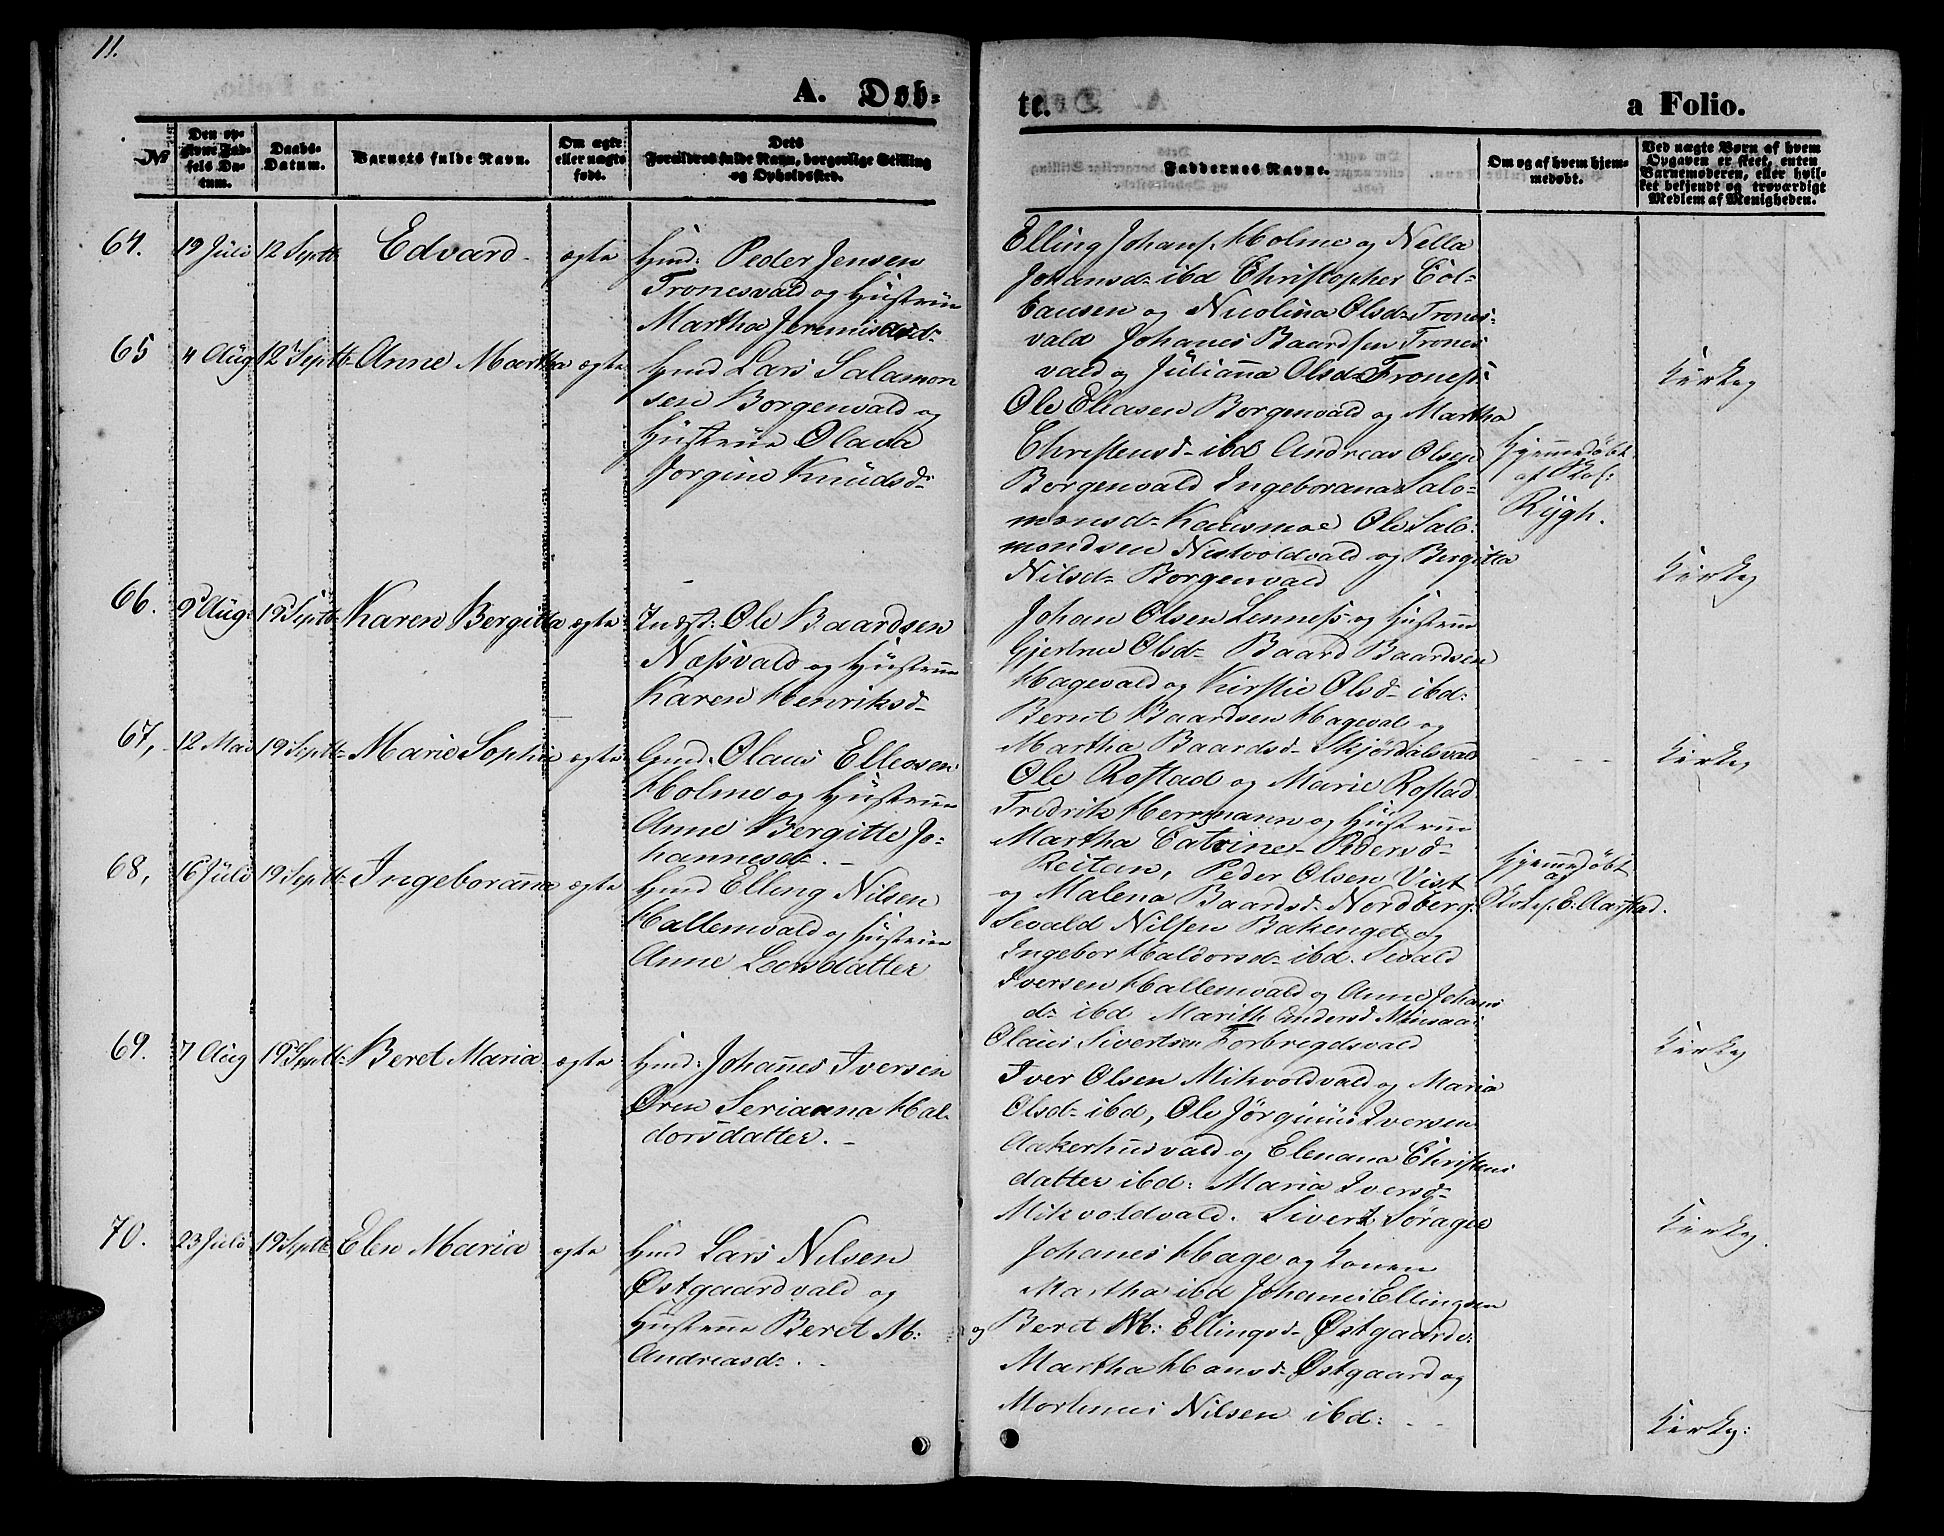 11.
A. Døb-
te.
a Folio.
No
Den op-
givne Fød-
sels Da-
tum.
Daabs-
Datum.
Barnets fulde Navn.
Om ægte
eller uægte
født.
Dets
Forældres fulde Navn, borgerlige Stilling
og Opholdssted.
Faddernes Navne.
Om og af hvem hjem-
medøbt.
Ved uægte Børn af hvem
Opgaven er skeet, enten
Barnemoderen, eller hvil-
ket bekjendt og troværdigt
Medlem af Menigheden.
64. 19 Juli 12 Septb Edvard ægte
Hmd: Peder Jensen
Tronesvald og Hustrue
Martha Jeremiasd:
Elling Johans. Holme og Nella
Johansd: ibd Christopher Col-
bausen og Nicolina Olsd: Trones-
vald Johanes Baardsen Trones
vald og Julianna Olsd: Tronesv:
Kirkeg
65 4 Aug 12 Septb Anne Martha ægte
Hmd Lars Salamon
sen Borgenvald og
Hustrue Olava
Jorgine Knudsd:
Ole Eliasen Borgenvald og Martha
Christensd: ibd Andreas Olsen
Borgenvald Ingeborana Salo-
monsd: Kausmoe Ole Salo-
mondsen Nestvoldvald og Bergitta
Nilsd: Borgenvald
Hjemmedøbt
af Skol:
Rygh.
Kirkeg
66. 9 Aug: 19 Septb Karen Bergitta ægte
Indst: Ole Baardsen
Næssvald og Hustrue
Karen Henriksd:
Johan Olsen Lenness og Hustrue
Gjertrue Olsd: Baard Baardsen
Hagevald og Kirstie Olsd: ibd:
Bernt Baardsen Hageval og
Martha Baardsd: Skjørdalsvald
Kirkeg
67, 12 Mai 19 Septb: Marie Sophie ægte
Gmd: Olaus Elleosen
Holme og Hustrue
Anne Bergitte Jo-
hannesd:. -
Ole Rostad og Marie Rostad
Fredrik Herrmann og Hustrue
Martha Catrine Pedersd:
Reitan, Peder Olsen Vist
og Malena Baardsd: Nordberg:
68, 16 Juli 19 Septb: Ingeboranna ægte
Hmd Elling Nilsen
Hallemvald og Hustrue
Anne Larsdatter
Sevald Nilsen Bakenget og
Ingebor Haldorsd: ibd. Sivald
Iversen Hallemvald og Anne Johans
d: ibd Marith Endersd Minsaas:
Olaus Sivertsen Forbregdsvald
Hjemmedøbt
af
Skols. E. Aarstad.
Kirkeg
69. 7 Aug 19 Septb: Beret Maria ægte
Hmd: Johannes Iversen
Ören Serianna Hal-
dorsdatter. -
Iver Olsen Mikvoldvald og Maria
Olsd: ibd, Ole Jørginius Iversen
Aakerhusvald og Elenana Christens
datter ibd: Maria Iversd:
Mikvoldvald. Sivert Søragie
Kirkeg.
70. 23 Juli 19 Septb Elen Maria ægte
Hmd Lars Nilsen
Østgaardvald og
Hustrue Beret M:
Andreasd:. -
Johanes Hage og Konen
Martha ibd Johanes Ellingsen
og Beret M: Ellingsd: Østgaardv:
Martha Hansd: Østgaard og
Mortenus Nilsen ibd: - -
Kirkeg: